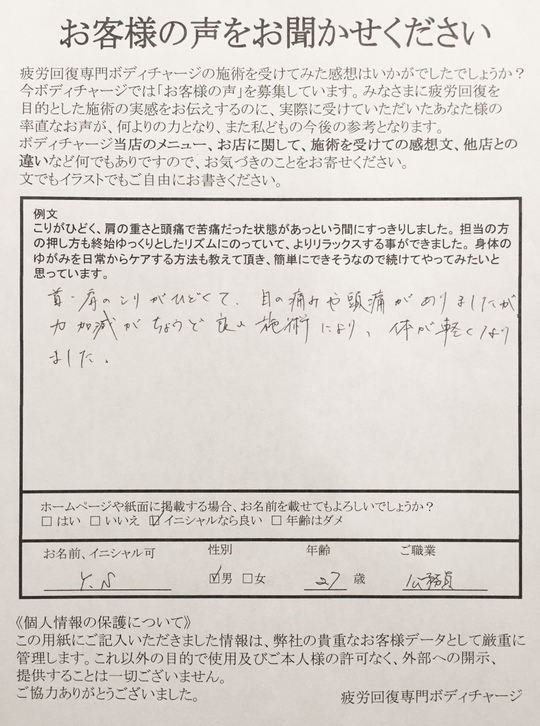 お客様の声をお聞かせください
疲労回復専門ボディチャージの施術を受けてみた感想はいかがでしたでしょうか?
今ボディチャージでは「お客様の声」を募集しています。みなさまに疲労回復を
目的とした施術の実感をお伝えするのに、実際に受けていただいたあなた様の
率直なお声が、何よりの力となり、また私どもの今後の参考となります。
ボディチャージ当店のメニュー、お店に関して、施術を受けての感想文、他店との
違いなど何でもありですので、お気づきのことをお寄せください。
文でもイラストでもご自由にお書きください。
例文
こりがひどく、肩の重さと頭痛で苦痛だった状態があっという間にすっきりしました。担当の方
の押し方も終始ゆっくりとしたリズムにのっていて、よりリラックスする事ができました。身体の
ゆがみを日常からケアする方法も教えて頂き、簡単にできそうなので続けてやってみたいと
思っています。
首・肩のこりがひどくて、目の痛みや頭痛がありましたが
力加減がちょうど良い施術により、体が軽くなり
ました。
ホームページや紙面に掲載する場合、お名前を載せてもよろしいでしょうか?
□ はい □ いいえ ☑ イニシャルなら良い □ 年齢はダメ
お名前、イニシャル可 性別 年齢 ご職業
Y.N ☑男 □女 27 歳 公務員
《個人情報の保護について》
この用紙にご記入いただきました情報は、弊社の貴重なお客様データとして厳重に
管理します。これ以外の目的で使用及びご本人様の許可なく、外部への開示、
提供することは一切ございません。
ご協力ありがとうございました。 疲労回復専門ボディチャージ